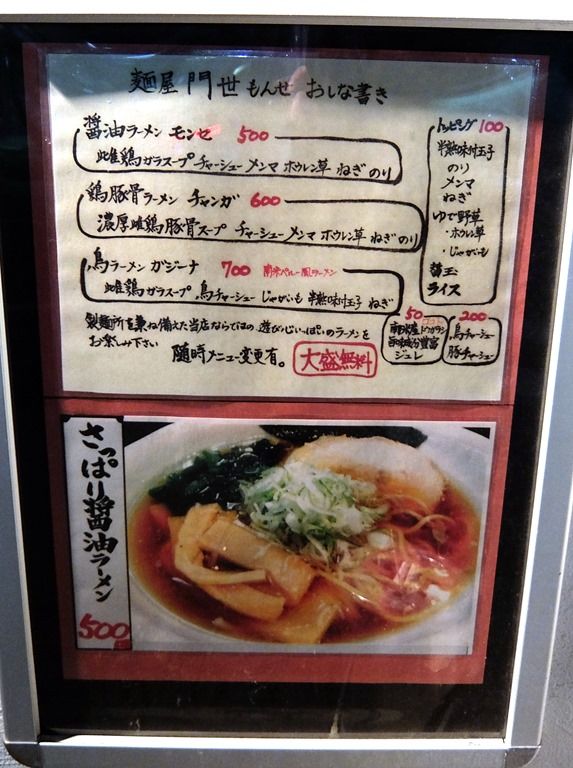 麺屋 門世 もんせ おしな書き
醤油ラーメン モンセ 500
雌鶏ガラスープ チャーシュー メンマ ホウレン草 ねぎ のり
鶏豚骨ラーメン チャンガ 600
濃厚雌鶏豚骨スープ チャーシュー メンマ ホウレン草 ねぎ のり
鳥ラーメン ガジーナ 700 南米ペルー風ラーメン
雌鶏ガラスープ 鳥チャーシュー じゃがいも 半熟味付玉子 ねぎ
製麺所を兼ね備えた当店ならではの遊び心いっぱいのラーメンを
お楽しみ下さい 随時メニュー変更有。 大盛無料
トッピング 100
半熟味付玉子
のり
メンマ
ねぎ
ゆで野草
・ホウレン草
・じゃがいも
替玉
ライス
50
南米産トウガラシ
旨味成分豊富
ジュレ
200
鳥チャーシュー
豚チャーシュー
さっぱり醤油ラーメン
500